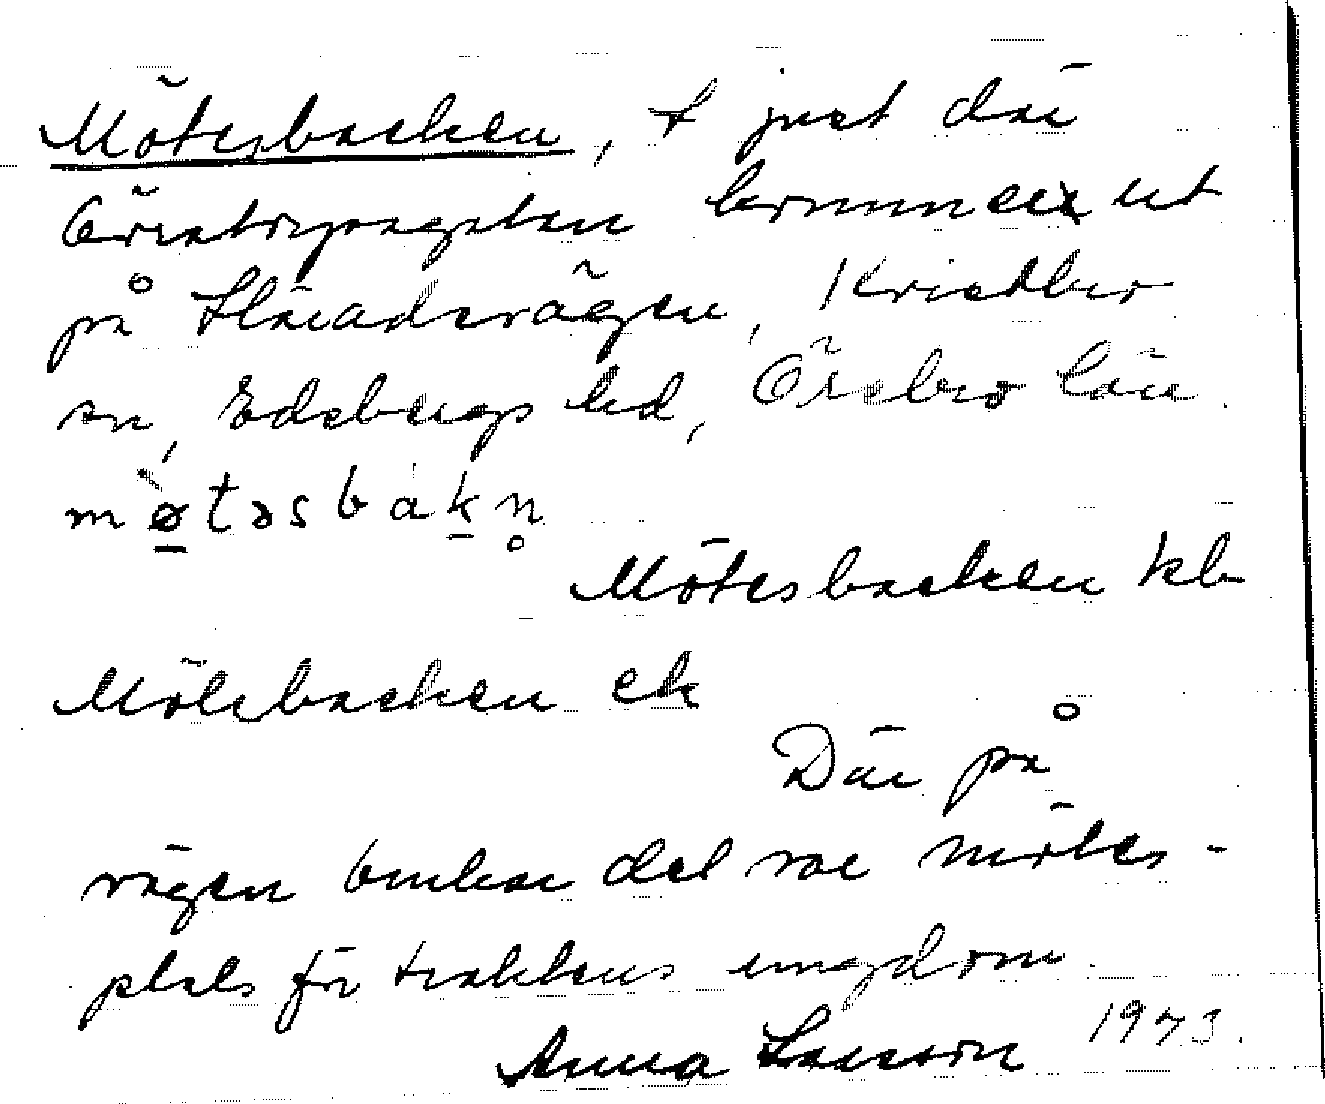 Mötesbacken, f just där
kommer ut
på Skävidsvägen, Kvistbro
sn, Edsbergs hd, Örebro län.
mø̱təsbak̠n̥
Mötesbacken kb
Mötesbacken ek
Där på
vägen brukar det var mötes-
plats för traktens ungdom.
Anna Larsson 1973.